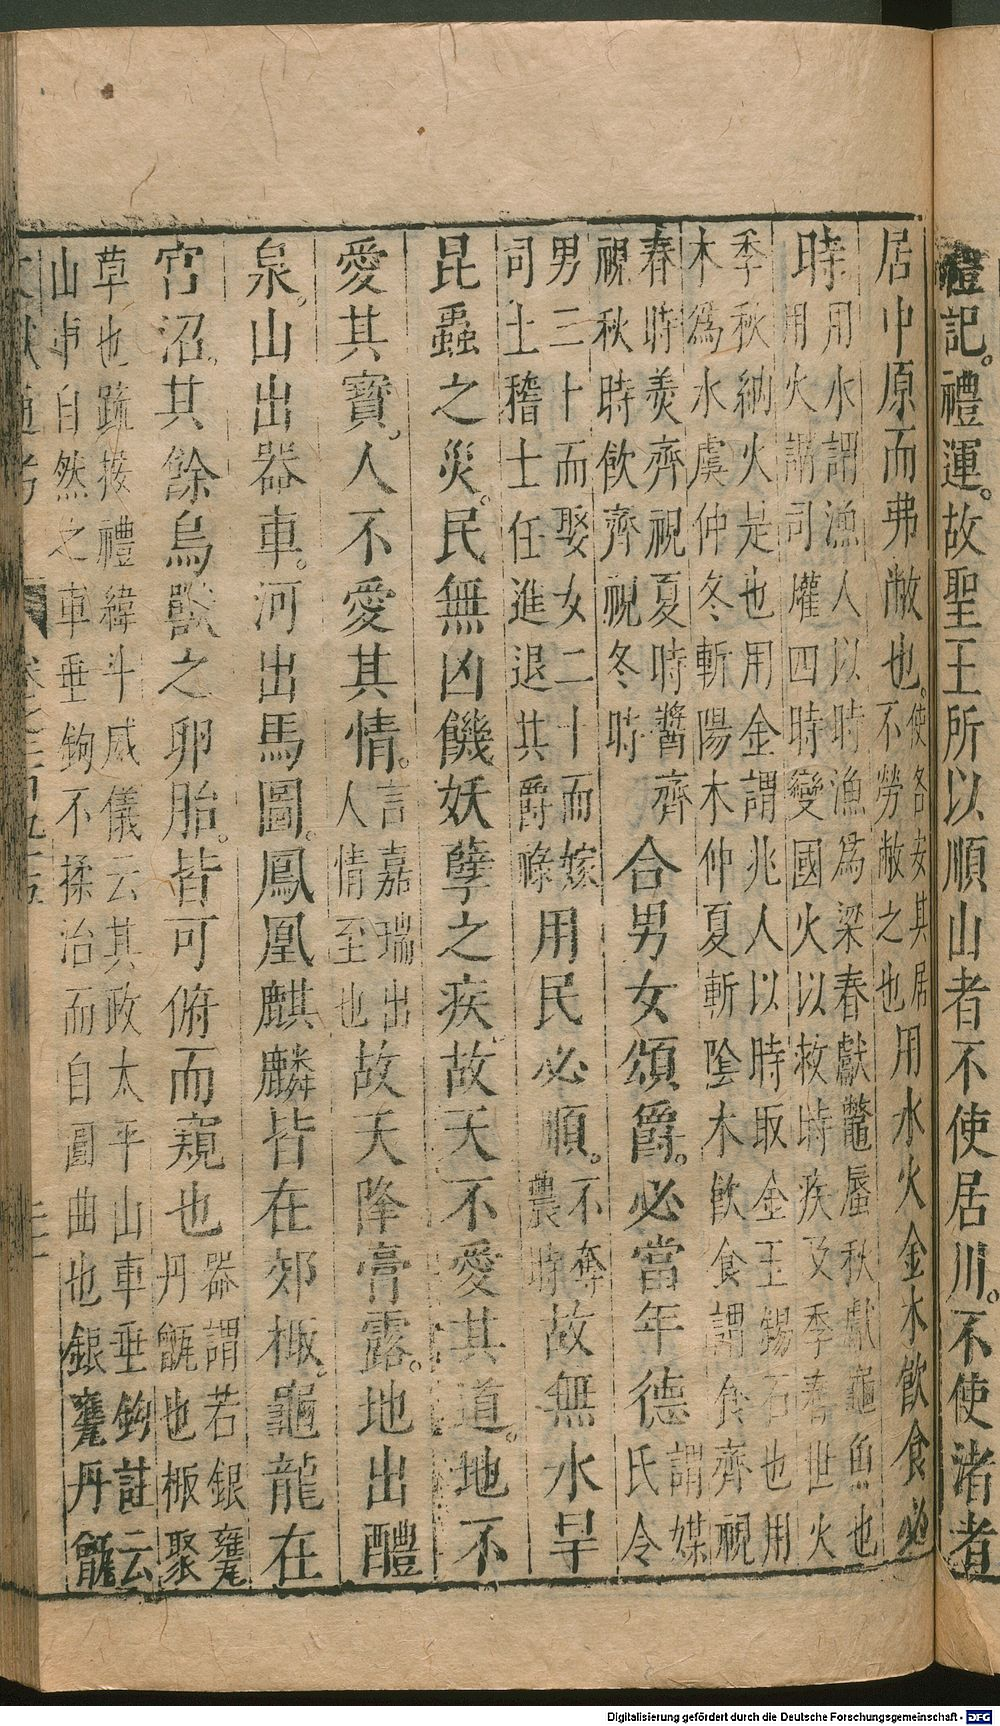 禮記。禮運。故聖王所以順山者不使居川。不使渚者
居中原而弗敝也。使各安其居不勞敝之也用水火金木飲食必
時用水謂漁人以時漁為梁春獻鼈蜃秋獻龜魚也
用火謂司爟四時變國火以救時疾及季春出火
季秋納火是也用金謂丱人以時取金玉錫石也用
木為水虞仲冬斬陽木仲夏斬陰木飲食謂食齊視
春時羮齊視夏時醬齊
視秋時飲齊視冬時合男女頒爵。必當年德謂媒氏令
男三十而娶女二十而嫁
司士稽士任進退其爵祿用民必順。不奪農時故無水旱
昆蟲之災。民無凶饑妖孽之疾。故天不愛其道。地不
愛其寶。人不愛其情。言嘉瑞出人情至也故天降膏露。地出醴
泉。山出器車。河出馬圖。鳳凰麒麟皆在郊棷。龜龍在
宮沼。其餘鳥獸之卵胎。皆可俯而窺也器謂若銀甕丹甑也棷聚
草也䟽按禮緯斗威儀云其政太平山車垂鉤註云
山車自然之車垂鉤不揉治而自圓曲也銀甕丹甑
Digitalisierung gefördert durch die Deutsche Forschungsgemeinschaft - DFG